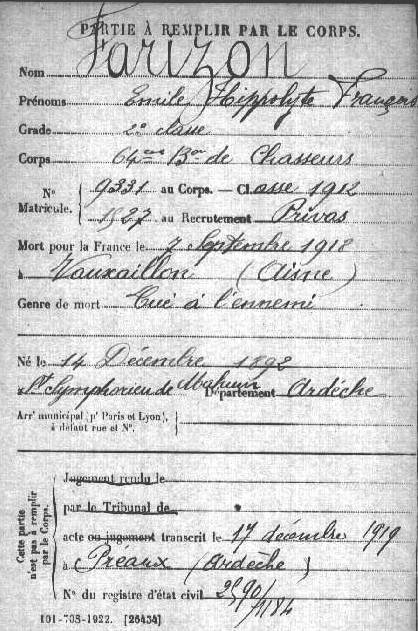 PARTIE À REMPLIR PAR LE CORPS.
Nom Farizon
Prénoms Emile Hippolyte François
Grade 2e classe
Corps 64ème Bon de Chasseurs
N° Matricule. 9331 au Corps. — Classe 1912
1527 au Recrutement Privas
Mort pour la France le 7 Septembre 1918
à Vauxaillon (Aisne)
Genre de mort Tué à l'ennemi
Né le 14 Décembre 1892
à St Symphorien de Mahun Département Ardèche
Arrt municipal (pr Paris et Lyon), à défaut rue et N°.
Cette partie n'est pas à remplir par le Corps.
Jugement rendu le
par le Tribunal de
acte ou jugement transcrit le 17 décembre 1919
à Préaux (Ardèche)
N° du registre d'état civil
101-708-1922. [26434]